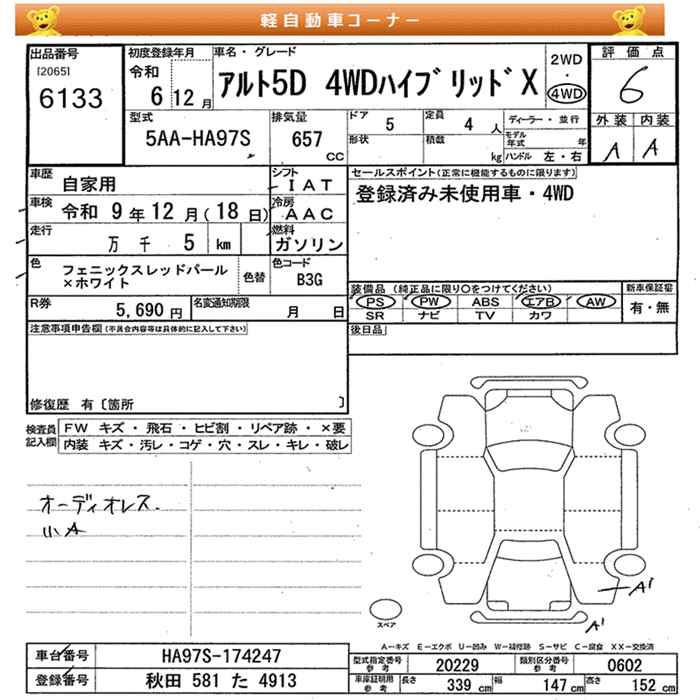 軽自動車コーナー
出品番号
[2065]
6133
初度登録年月
令和
6 12 月
車名・グレード
アルト5D 4WDハイブリッドX
2WD
・
4WD
評価点
6
外装 内装
A A
型式
5AA-HA97S
排気量
657
CC
ドア
5
定員
4 人
形状
積載
kg
ディーラー・並行
モデル年式 年
ハンドル 左・右
車歴
自家用
シフト
IAT
車検
令和 9年 12月(18日)
冷房
AAC
走行
万 千 5 km
燃料
ガソリン
色
フェニックスレッドパール
×ホワイト
色替
色コード
B3G
R券
5,690 円
名変通知期限
月 日
セールスポイント(正常に機能するものに限ります)
登録済み未使用車・4WD
装備品 (純正品に限り〇をつけてください)
PS PW ABS エアB AW
SR ナビ TV カワ
新車保証書
有・無
後日品
注意事項申告欄(不具合内容等は具体的に記入して下さい)
修復歴 有〔箇所 〕
検査員記入欄
FW キズ・飛石・ヒビ割・リペア跡・×要
内装 キズ・汚レ・コゲ・穴・スレ・キレ・破レ
オーディオレス.
小A
A'
A'
スペア
A-キズ E-エクボ U-凹み W-補修跡 S-サビ C-腐食 XX-交換済
車台番号
HA97S-174247
登録番号
秋田 581 た 4913
型式指定番号 参考
20229
類別区分番号 参考
0602
車庫証明用 参考
長さ 339 cm
幅 147 cm
高さ 152 cm